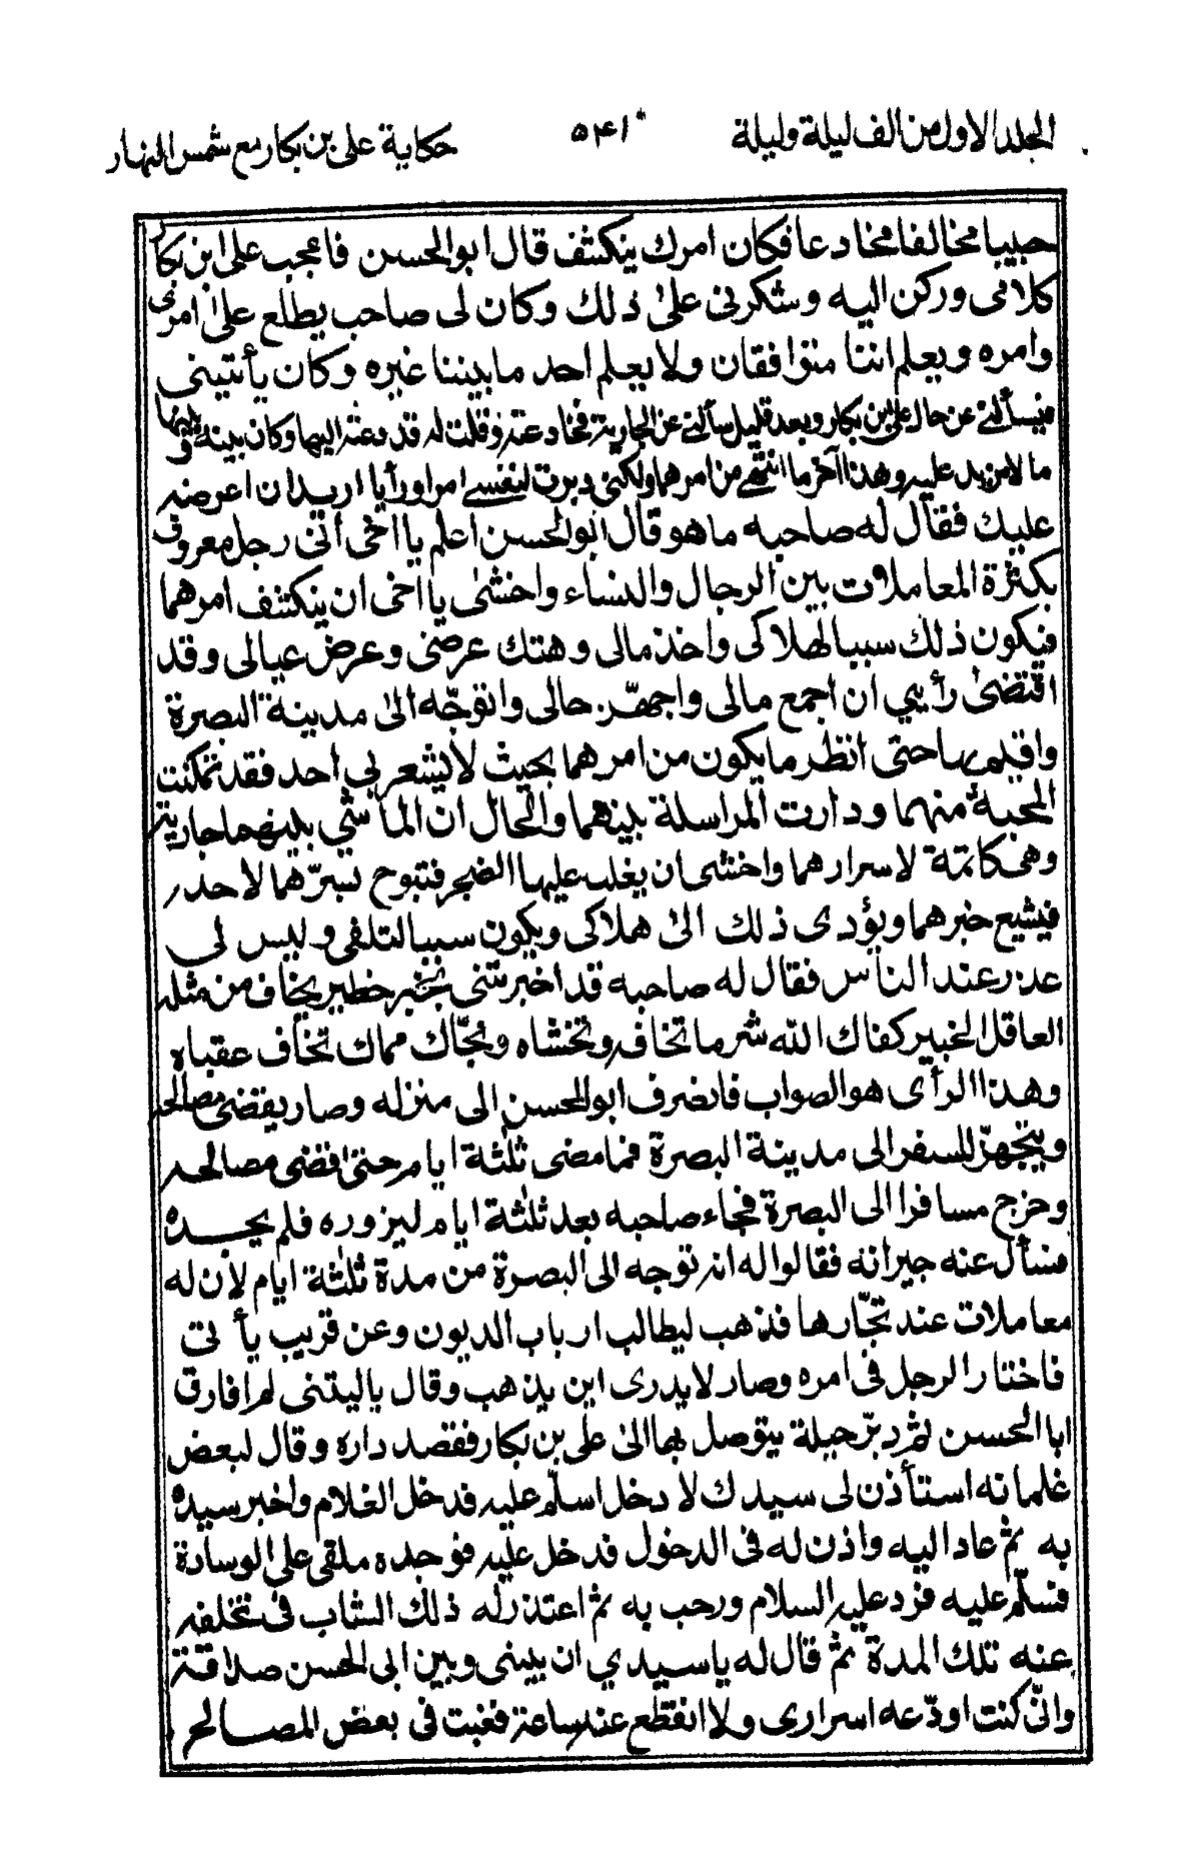 الجلد الاول من الف ليلة وليلة
٥٤١
حكاية على بن بكار مع شمس النهار
حبيبا مخالفا مخادعا فكان امرك ينكشف قال ابو الحسن فاعجب على ابن بكار
كلامى وركن اليه وشكرنى على ذلك وكان لى صاحب يطلع على امرى
وامره ويعلم اننا متوافقان ولا يعلم احد ما بيننا غيره وكان يأتينى
فيسألنى عن حال على ابن بكار وبعد قليل سألنى عن الجارية فخادعته وقلت له قد دعته اليها وكان بينه وبينها
ما لا مزيد عليه وهذا آخر ما انتهى من امرهما ولكنى دبرت لنفسى امرا ورأيا اريد ان اعرضه
عليك فقال له صاحبه ما هو قال ابو الحسن اعلم يا اخى انى رجل معروف
بكثرة المعاملات بين الرجال والنساء واخشى يا اخى ان ينكشف امرهما
فيكون ذلك سببا لهلاكى واخذ مالى وهتك عرضى وعرض عيالى وقد
اقتضى رأيي ان اجمع مالى واجهّز حالى واتوجّه الى مدينة البصرة
واقيم بها حتى انظر ما يكون من امرهما بحيث لا يشعر بي احد فقد تمكنت
المحبة منهما ودارت المراسلة بينهما والحال ان الماشي بينهما جارية
وهى كاتمة لاسرارهما واخشى ان يغلب عليها الضجر فتبوح بسرّهما لاحد
فيشيع خبرهما ويؤدى ذلك الى هلاكى ويكون سببا لتلفى وليس لى
عذر عند الناس فقال له صاحبه قد اخبرتنى بخبر خطير يخاف من مثله
العاقل الخبير كفاك الله شر ما تخافه وتخشاه ونجّاك مماك تخاف عقباه
وهذا الرأى هو الصواب فانصرف ابو الحسن الى منزله وصار يقضى مصالحه
ويتجهّز للسفر الى مدينة البصرة فما مضى ثلثة ايام حتى قضى مصالحه
وخرج مسافرا الى البصرة فجاء صاحبه بعد ثلثة ايام ليزوره فلم يجده
فسأل عنه جيرانه فقالوا له انه توجه الى البصرة من مدة ثلثة ايام لان له
معاملات عند تجّارها فذهب ليطالب ارباب الديون وعن قريب يأتى
فاختار الرجل فى امره وصار لا يدرى اين يذهب وقال يا ليتنى لم افارق
ابا الحسن ثم دبّر حيلة يتوصل بها الى على بن بكار فقصد داره وقال لبعض
غلمانه استأذن لى سيدك لا دخل اسلّم عليه فدخل الغلام واخبر سيده
به ثم عاد اليه واذن له فى الدخول فدخل عليه فوجده ملقى على الوسادة
فسلّم عليه فرد عليه السلام ورحب به ثم اعتذر له ذلك الشاب فى تخلفه
عنه تلك المدة ثم قال له يا سيدي ان بينى وبين ابى الحسن صداقة
وانّى كنت اودّعه اسرارى ولا انقطع عنه ساعة فغبت فى بعض المصالح